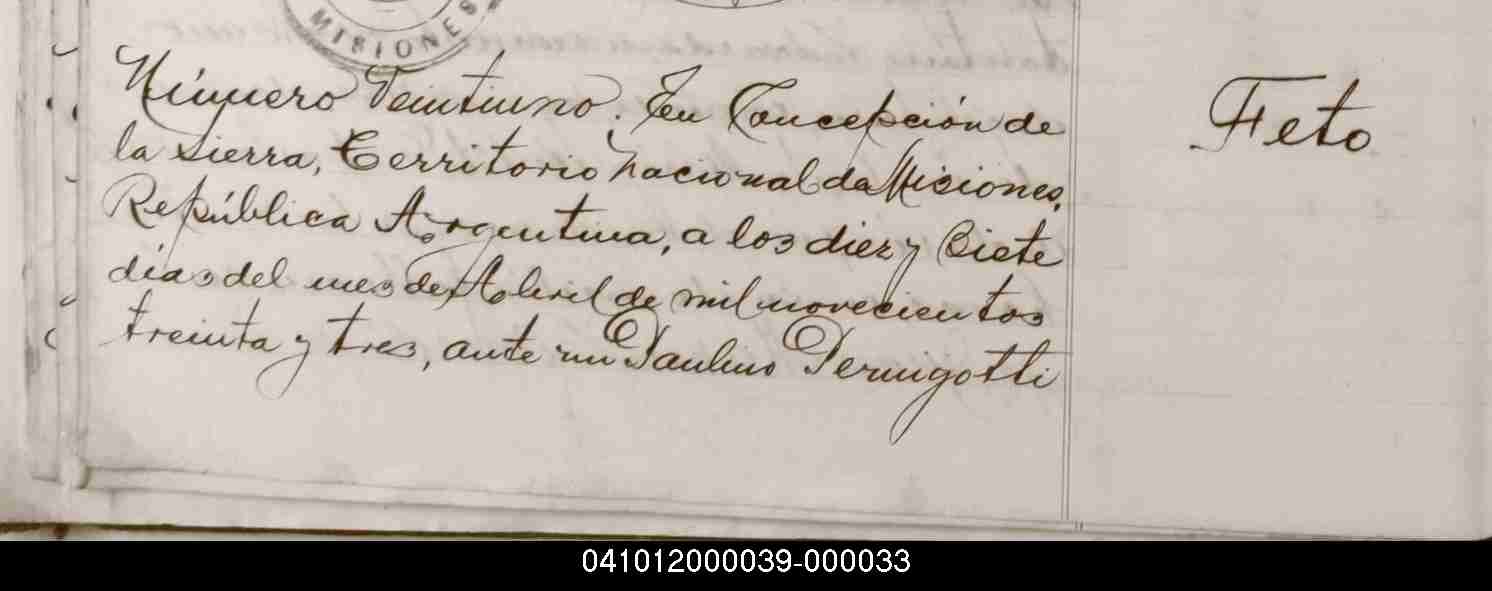 MISIONES
Número Veintiuno: En Concepción de
la Sierra, Territorio Nacional de Misiones,
República Argentina, a los diez y siete
días del mes de Abril de mil novecientos
treinta y tres, ante mi Paulino Pernigotti
Feto
041012000039-000033